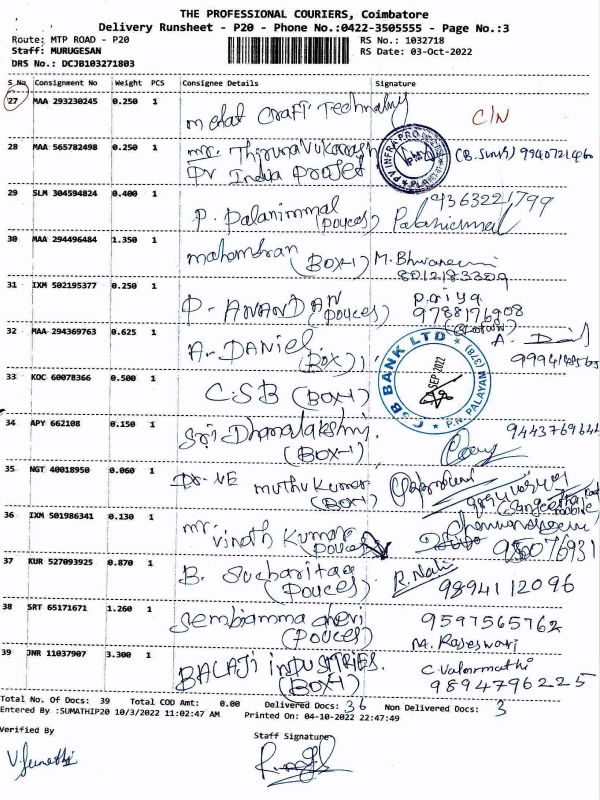 THE PROFESSIONAL COURIERS, Coimbatore
Delivery Runsheet - P20 - Phone No.:0422-3505555 - Page No.:3
Route: MTP ROAD - P20
RS No.: 1032718
Staff: MURUGESAN
RS Date: 03-Oct-2022
DRS No.: DCJB103271803
S.No Consignment No Weight PCS Consignee Details Signature
27 MAA 293230245 0.250 1
craft Technology C/N
28 MAA 565782498 0.250 1
mr. Thirunavukarasu
PV India Projet
PV INFRA PROJECTS
9940721460
29 SLM 304594824 0.400 1
P. Palanimmal (Pouces)
9363221799
30 MAA 294496484 1.350 1
(BOX-1)
8012183309
31 IXM 502195377 0.250 1
P. ANANDAN (Pouces)
Priya
9788176908
32 MAA 294369763 0.625 1
A. DANIEL (BOX)
33 KOC 60078366 0.500 1
CSB (BOX-1)
CSB BANK LTD
P.N. PALAYAM (378)
SEP 2022
34 APY 662108 0.150 1
Sri Dhanalakshmi
(BOX-1)
35 NGT 40018950 0.060 1
Dr. VE muthu Kumar
(BOX-1)
36 IXM 501986341 0.130 1
mr. vinoth Kumar
(Pouces)
37 KUR 527093925 0.870 1
B. Sucharitaa
(Pouces)
9894112096
38 SRT 65171671 1.260 1
(Pouces)
9597565762
M. Rajeswari
39 JNR 11037907 3.300 1
BALAJI INDUSTRIES.
(BOX-1)
C Valarmathi
9894796225
Total No. Of Docs: 39 Total COD Amt: 0.00 Delivered Docs: 36 Non Delivered Docs: 3
Entered By :SUMATHIP20 10/3/2022 11:02:47 AM Printed On: 04-10-2022 22:47:49
Verified By
Staff Signature